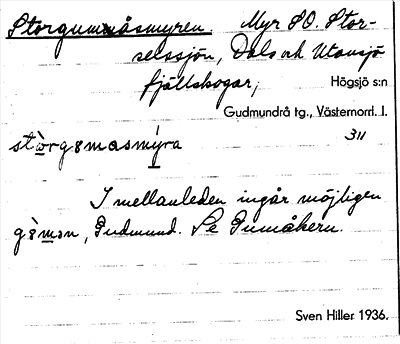 Storgumåsmyren. Myr SO. Stor-
selssjön, Dals och Utansjö
fjällskogar, Högsjö s:n
Gudmundrå tg., Västernorrl. l.
311
stòrgɵmasmýra
I mellanleden ingår möjligen
gɵ̀mən, Gudmund. Se Gumåkern.
Sven Hiller 1936.